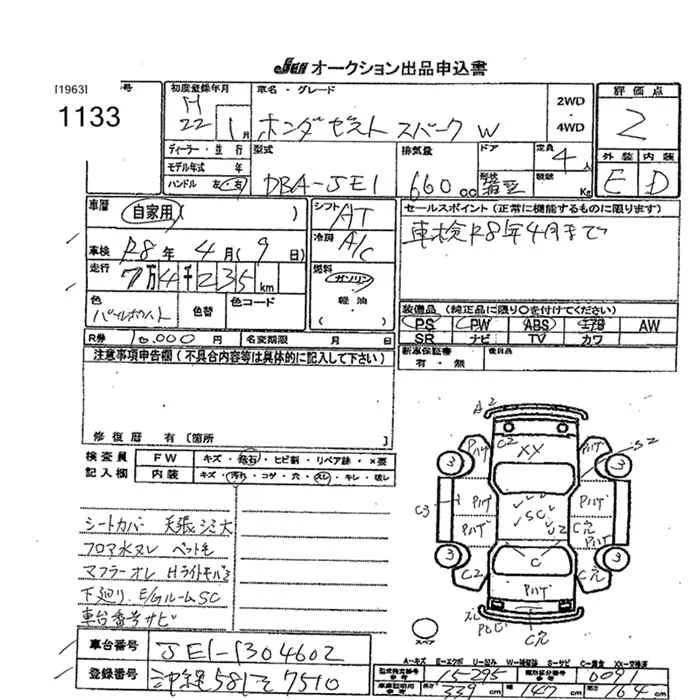 JSEN オークション出品申込書
[1963] 号
1133
初度登録年月
H
22 1月
車名・グレード
ホンダ ゼスト スパーク W
2WD
・
4WD
評価点
2
ディーラー・並行
モデル年式 年
ハンドル 左・右
型式
DBA-JE1
排気量
660cc
ドア
形状
定員
4人
積載
Kg
外装 内装
E D
車歴
自家用( )
シフト
AT
セールスポイント(正常に機能するものに限ります)
車検R8年4月まで
車検 R8年 4月(9日)
冷房
A/C
走行 7万4千235km
燃料
ガソリン
軽油
色
パールホワイト
色替
色コード
装備品(純正品に限り○を付けてください)
PS PW ABS AW
SR ナビ TV カワ
R券 円
名変期限 月 日
新車保証書
有・無
後日品
注意事項申告欄(不具合内容等は具体的に記入して下さい)
修復歴 有[箇所 ]
検査員
記入欄
FW キズ・飛石・ヒビ割・リペア跡・×要
内装 キズ・汚れ・コゲ・穴・スレ・キレ・破レ
シートカバー 天張シミ大
フロア水ヌレ ペット毛
マフラーオレ Hライトモール
下廻り、E/GルームSC
車台番号サビ
A2
C2
XX
ハゲ
ハゲ
S2
3
3
C3
ハゲ
ハゲ
ハゲ
ハゲ
SC
U2
C穴
C
3
3
C2
C穴
ハゲ
C穴
スペア
A=キズ E=エクボ U=凹み W=補修跡 S=サビ C=腐食 XX=交換済
車台番号 JE1-1304602
登録番号 沖縄 581 そ 7510
型式指定番号 15295
類別区分番号 0091
長さ 339cm
幅 147cm
cm